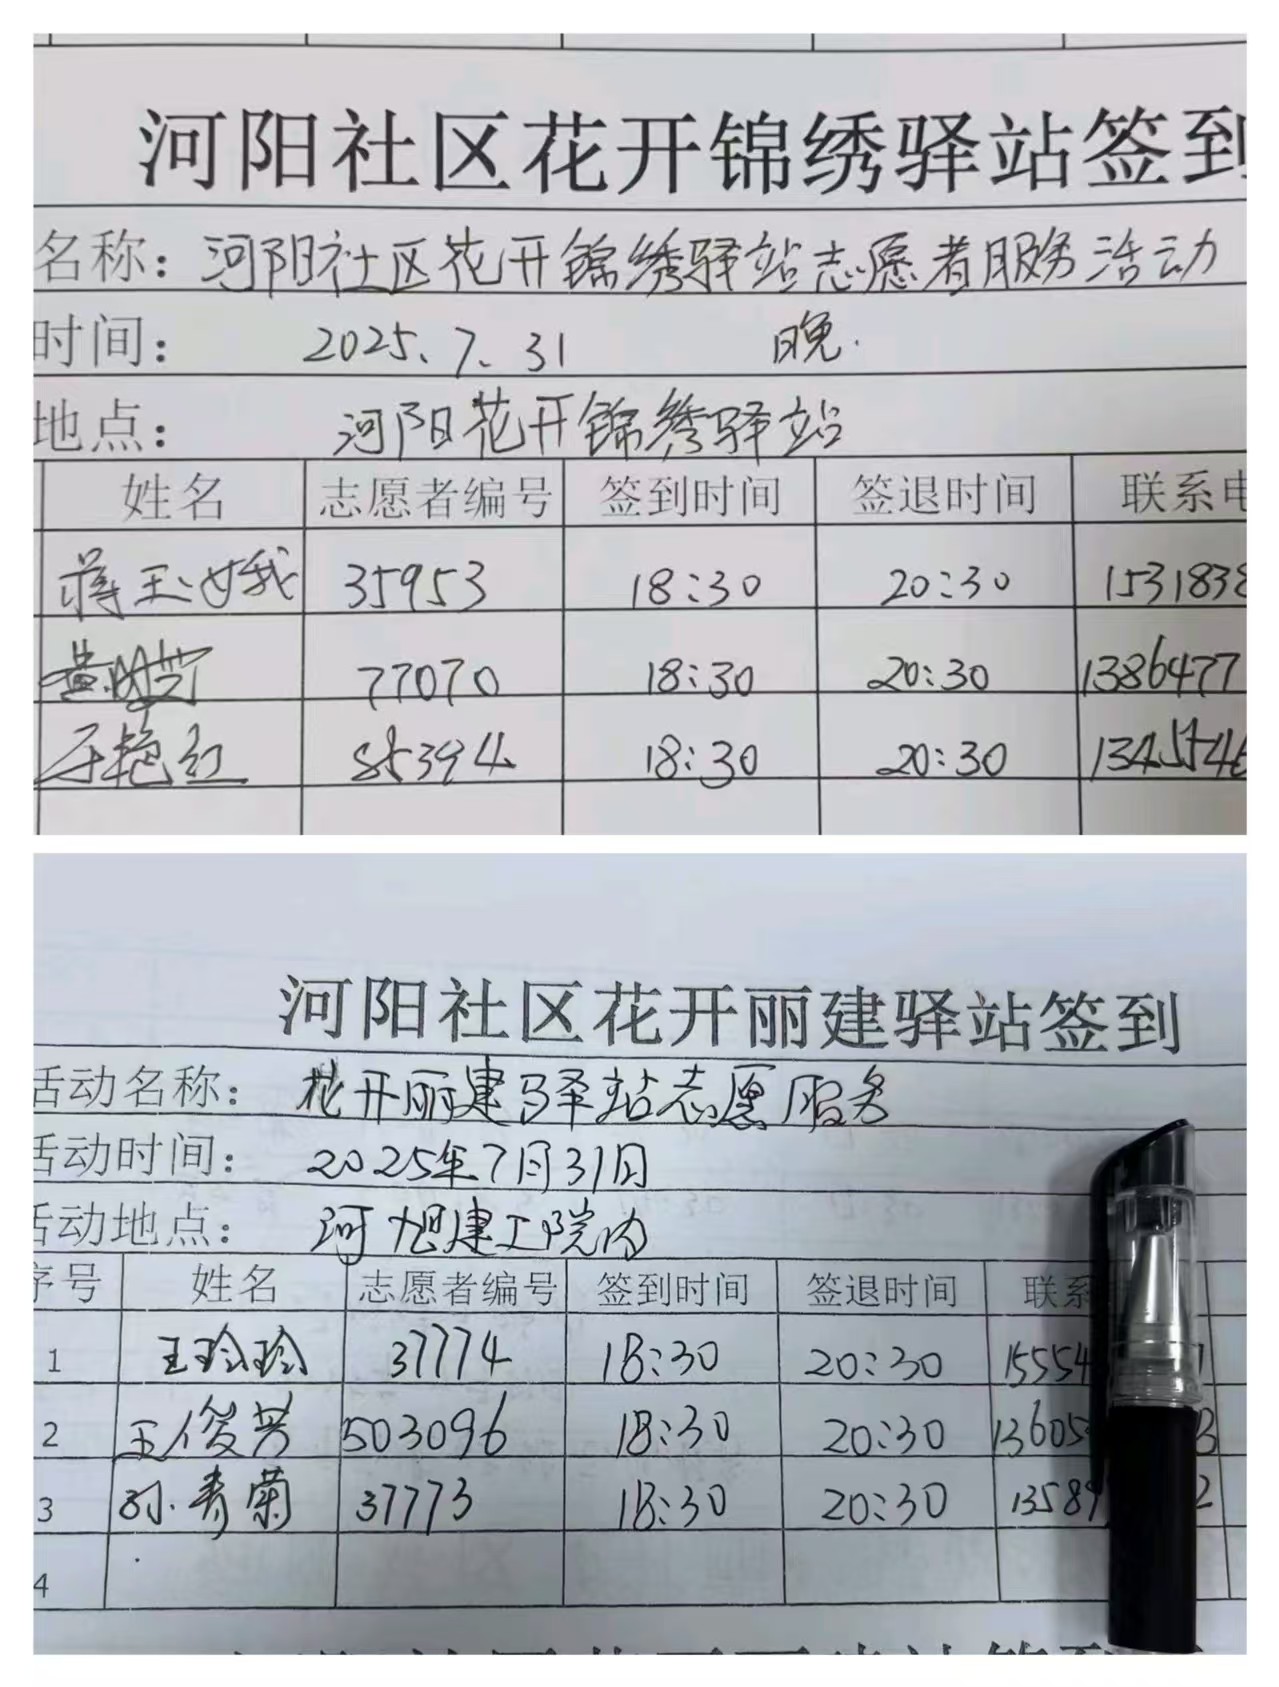 河阳社区花开锦绣驿站签到
名称：河阳社区花开锦绣驿站志愿者服务活动
时间：2025.7.31 晚.
地点：河阳花开锦绣驿站
姓名 志愿者编号 签到时间 签退时间 联系
蒋玉娥 35953 18:30 20:30 1531838
77070 18:30 20:30 1386477
于艳红 85394 18:30 20:30 1345546
河阳社区花开丽建驿站签到
活动名称：花开丽建驿站志愿服务
活动时间：2025年7月31日
活动地点：河旭建工院内
序号 姓名 志愿者编号 签到时间 签退时间 联系
1 王玲玲 37774 18:30 20:30 15554
2 王俊芳 503096 18:30 20:30 13605
3 孙青菊 37773 18:30 20:30 13589 2
4